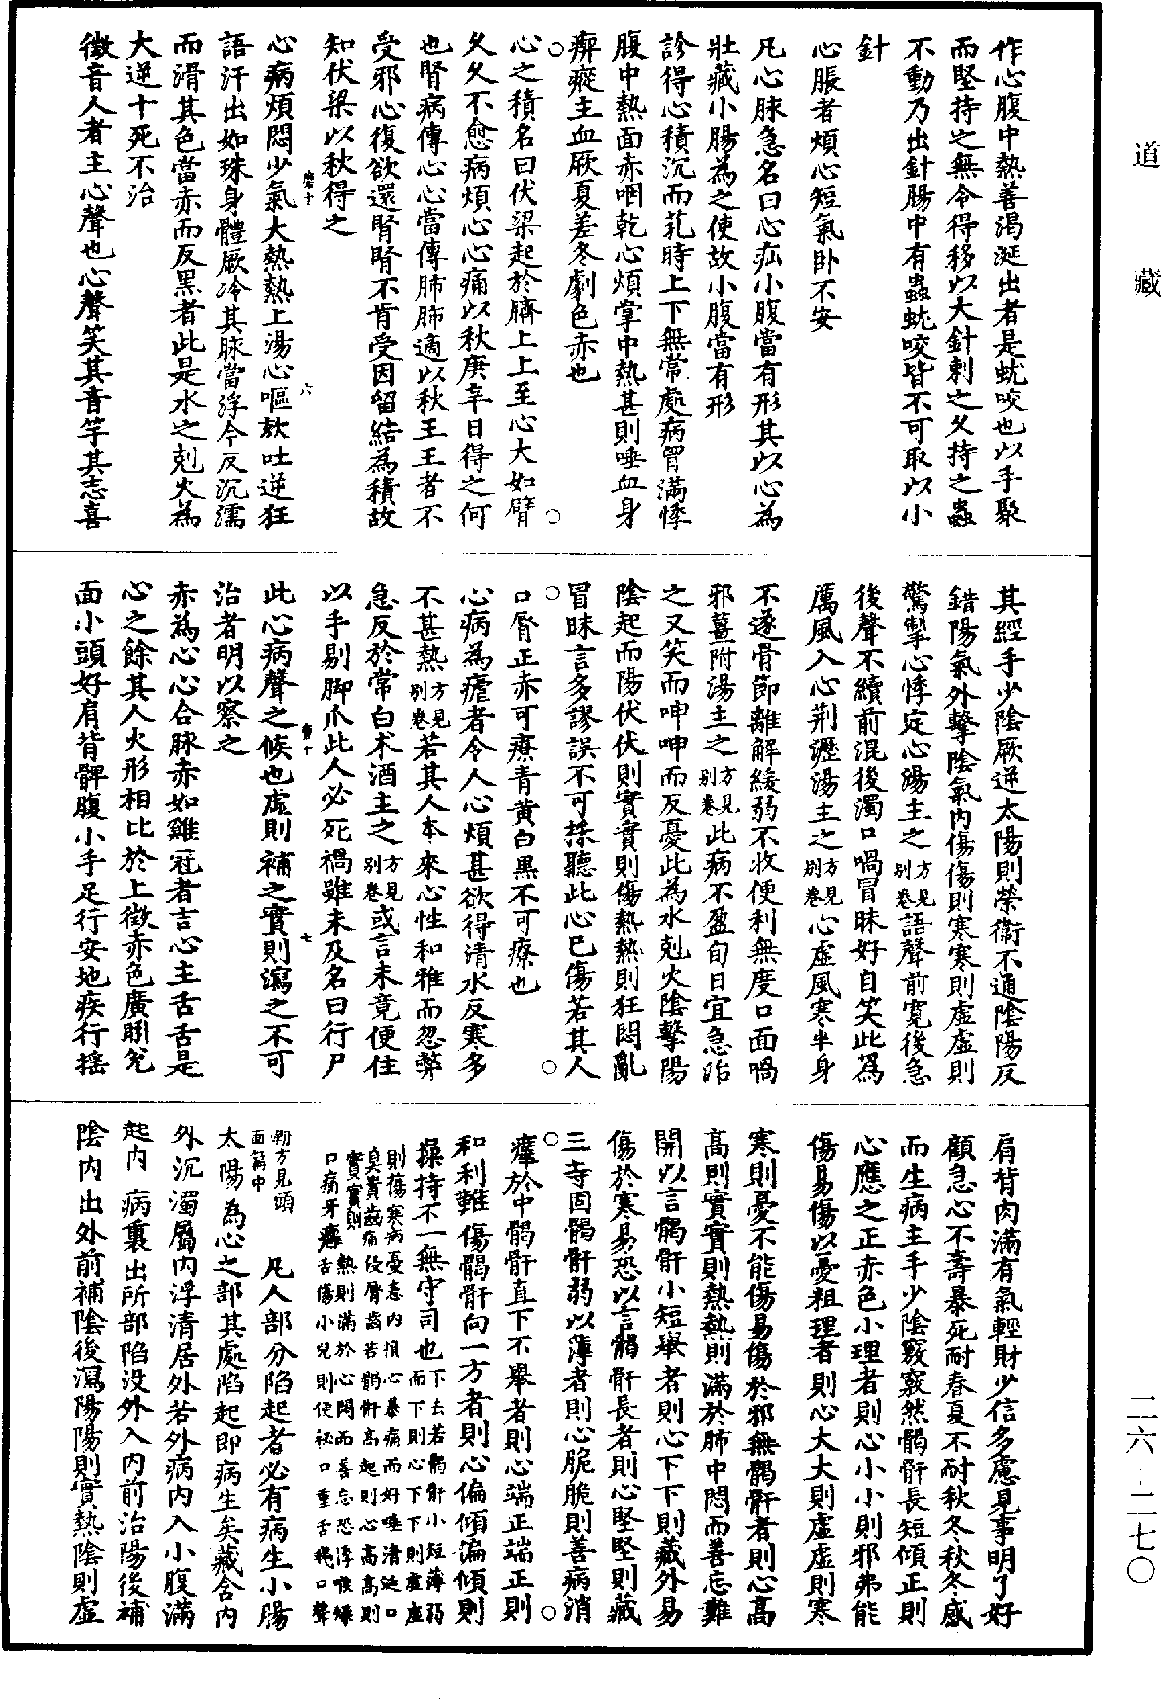 道藏
二六·二七〇
作心腹中熱善渴涎出者是蚘咬也以手聚
而堅持之無令得移以大針刺之久持之蟲
不動乃出針腸中有蟲蚘咬皆不可取以小
針
心脹者煩心短氣臥不安
凡心脉急名曰心疝小腹當有形其以心為
壯藏小腸為之使故小腹當有形
診得心積沉而芤時上下無常處病胷滿悸
腹中熱面赤咽乾心煩掌中熱甚則唾血身
瘈瘲主血厥夏差冬劇色赤也
心之積名曰伏梁起於臍上上至心大如臂
久久不愈病煩心心痛以秋庚辛日得之何
也腎病傳心心當傳肺肺適以秋王王者不
受邪心復欲還腎腎不肯受因留結為積故
知伏梁以秋得之
心病煩悶少氣大熱熱上湯心嘔欬吐逆狂
語汗出如珠身體厥冷其脉當浮今反沉濡
而滑其色當赤而反黑者此是水之剋火為
大逆十死不治
徵音人者主心聲也心聲笑其音竽其志喜
其經手少陰厥逆太陽則榮衞不通陰陽反
錯陽氣外擊陰氣內傷傷則寒寒則虛虛則
驚掣心悸定心湯主之方見別卷語聲前寛後急
後聲不續前混後濁口喎冒昧好自笑此為
厲風入心荆瀝湯主之方見別卷心虛風寒半身
不遂骨節離解緩弱不收便利無度口面喎
邪薑附湯主之方見別卷此病不盈旬日宜急治
之又笑而呻呻而反憂此為水剋火陰擊陽
陰起而陽伏伏則實實則傷熱熱則狂悶亂
冒昧言多謬誤不可採聽此心已傷若其人
口脣正赤可療青黃白黑不可療也
心病為瘧者令人心煩甚欲得清水反寒多
不甚熱方見別卷若其人本來心性和雅而忽弊
急反於常白术酒主之方見別卷或言未竟便住
以手剔脚爪此人必死禍雖未及名曰行尸
此心病聲之候也虛則補之實則瀉之不可
治者明以察之
赤為心心合脉赤如雞冠者吉心主舌舌是
心之餘其人火形相比於上徵赤色廣䏖兌
面小頭好肩背髀腹小手足行安地疾行搖
肩背肉滿有氣輕財少信多慮見事明了好
顧急心不壽暴死耐春夏不耐秋冬秋冬感
而生病主手少陰竅竅然𩩲骬長短傾正則
心應之正赤色小理者則心小小則邪弗能
傷易傷以憂粗理者則心大大則虛虛則寒
寒則憂不能傷易傷於邪無𩩲骬者則心高
高則實實則熱熱則滿於肺中悶而善忘難
開以言𩩲骬小短舉者則心下下則藏外易
傷於寒易恐以言𩩲骬長者則心堅堅則藏
三寺固𩩲骬弱以薄者則心脆脆則善病消
癉於中𩩲骬直下不舉者則心端正端正則
和利難傷𩩲骬向一方者則心偏傾偏傾則
操持不一無守司也下去若𩩲骬小短薄弱而下則心下下則虛虛
則傷寒病憂恚內損心暴痛而好唾清涎口臭蠹齒痛侵脣齒若𩩲骬高起則心高高則
實實則熱則滿於心悶而善忘恐浮喉燥口痛牙癢舌傷小兒則便祕口重舌鵝口聲
𠡠方見頭面篇中凡人部分陷起者必有病生小腸
太陽為心之部其處陷起即病生矣藏含內
外沉濁屬內浮清居外若外病內入小腹滿
起內病裏出所部陷沒外入內前治陽後補
陰內出外前補陰後瀉陽陽則實熱陰則虛